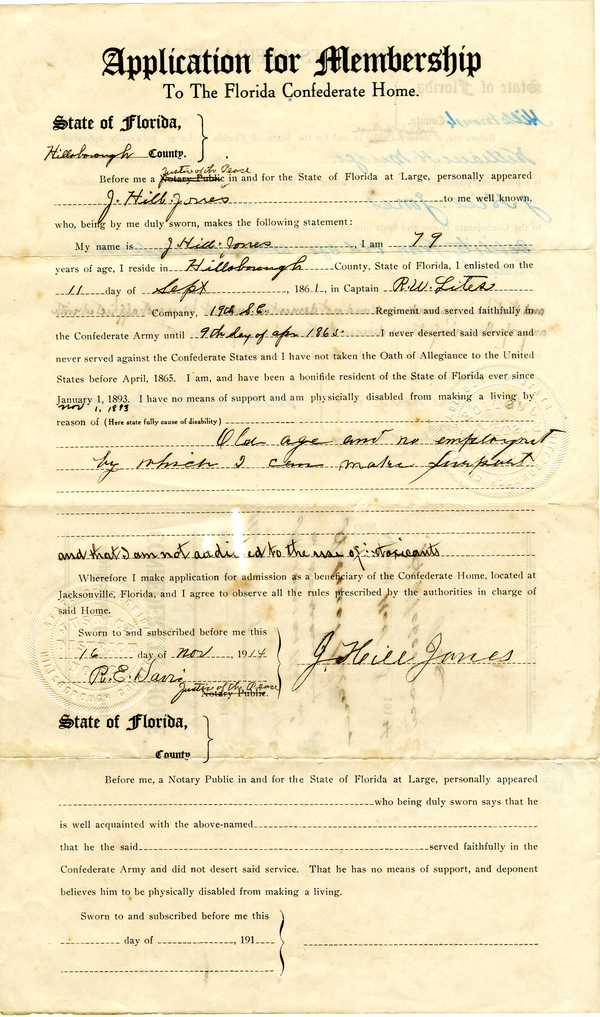 Application for Membership
To The Florida Confederate Home.
State of Florida,
Hillsborough County.
Justice of the Peace
Before me a Notary Public in and for the State of Florida at Large, personally appeared
J. Hill Jones to me well known,
who, being by me duly sworn, makes the following statement:
My name is J Hill Jones, I am 79
years of age, I reside in Hillsborough County, State of Florida, I enlisted on the
11 day of Sept, 1861, in Captain R.W. Lites
Company, 19th S.C. Regiment and served faithfully in
the Confederate Army until 9th day of apr 1865. I never deserted said service and
never served against the Confederate States and I have not taken the Oath of Allegiance to the United
States before April, 1865. I am, and have been a bonifide resident of the State of Florida ever since
January 1, 1893. I have no means of support and am physicially disabled from making a living by
nov 1, 1893
reason of (Here state fully cause of disability)
Old age and no employmt
by which I can make surport
and that I am not addicted to the use of intoxicants
Wherefore I make application for admission as a beneficiary of the Confederate Home, located at
Jacksonville, Florida, and I agree to observe all the rules prescribed by the authorities in charge of
said Home.
Sworn to and subscribed before me this
16 day of nov, 1914
J. Hill Jones
R.E. Davis
Justice of the Peace
Notary Public.
State of Florida,
County
Before me, a Notary Public in and for the State of Florida at Large, personally appeared
who being duly sworn says that he
is well acquainted with the above-named
that he the said served faithfully in the
Confederate Army and did not desert said service. That he has no means of support, and deponent
believes him to be physically disabled from making a living.
Sworn to and subscribed before me this
day of , 191